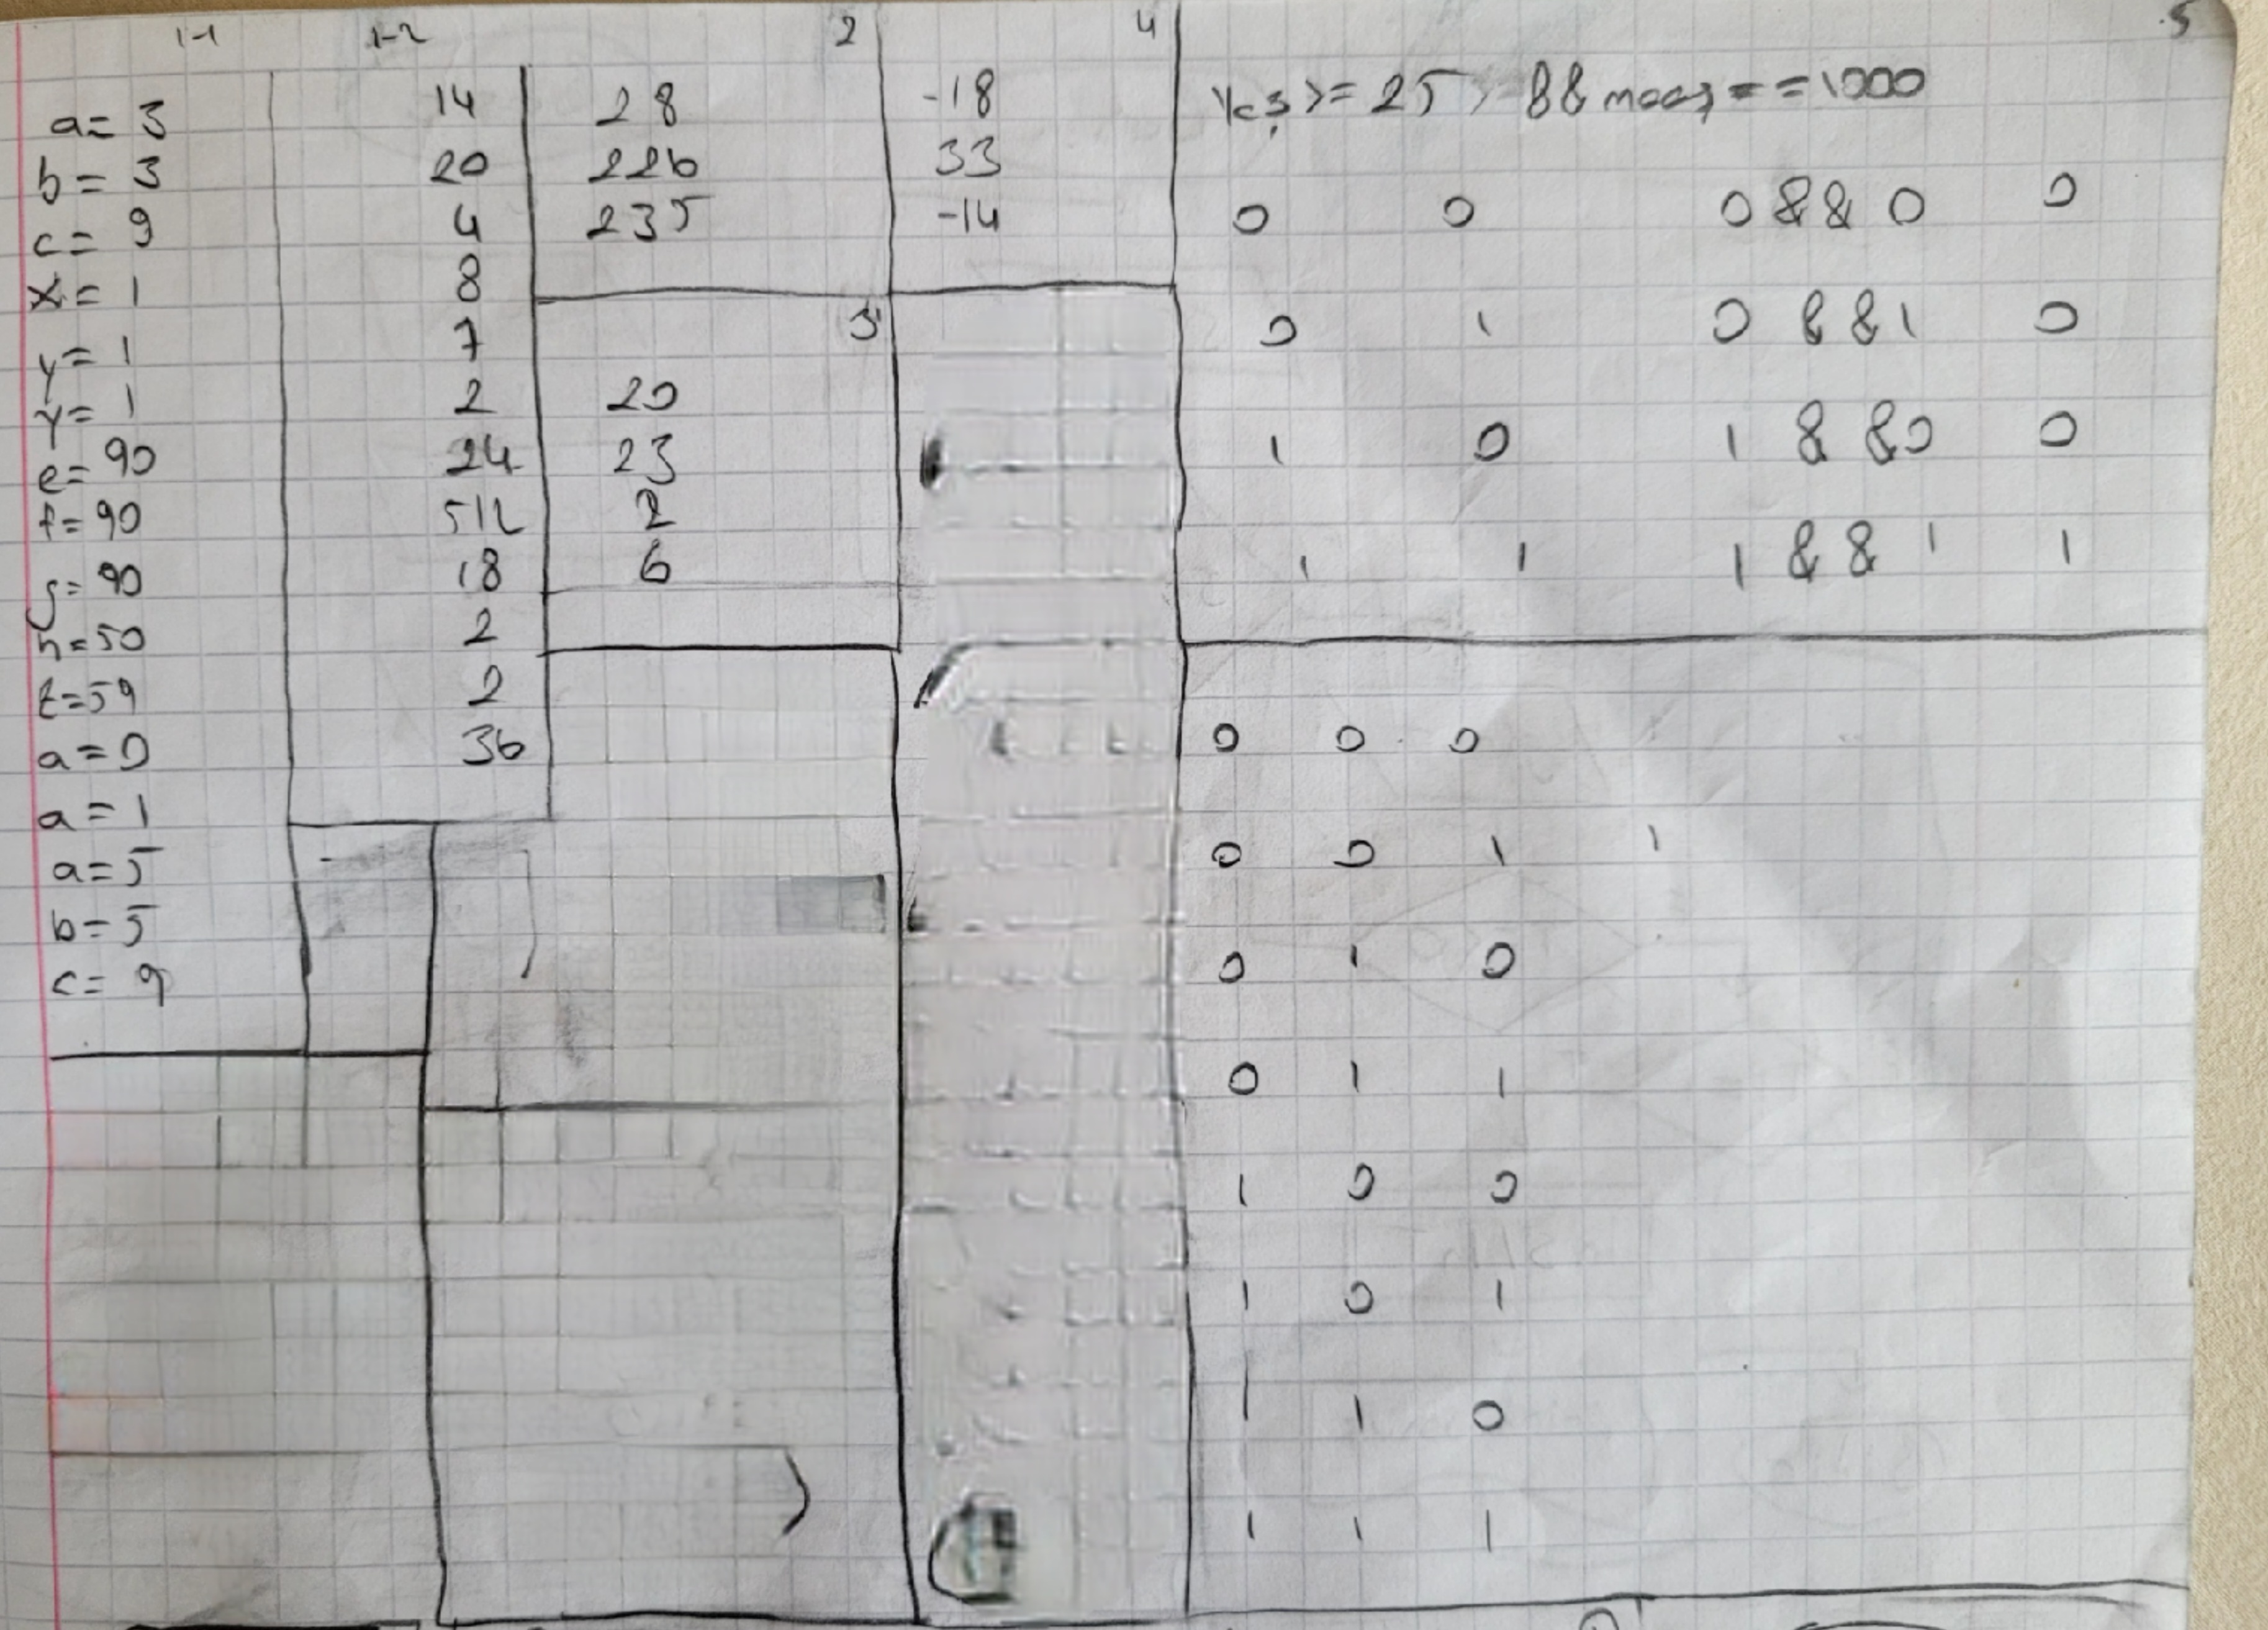 1-1
a= 3
b= 3
c= 9
x= 1
y= 1
y= 1
e= 90
f= 90
g= 90
h=50
z=59
a=0
a=1
a=5
b=5
c= 9
1-2
14
20
4
8
7
2
24
512
18
2
2
36
2
28
226
235
3
20
23
2
6
4
-18
33
-14
5
>= 25 && == 1000
0 0 0 && 0 0
0 1 0 && 1 0
1 0 1 && 0 0
1 1 1 && 1 1
0 0 0
0 0 1 1
0 1 0
0 1 1
1 0 0
1 0 1
1 1 0
1 1 1